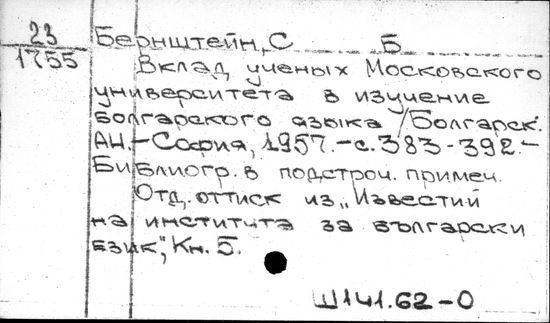 23
1755
Бернштейн, С Б
Вклад ученых Московского
университета в изучение
болгарского языка / Болгарск.
АН. – София, 1957. – с. 383-392. –
Библиогр. в подстроч. примеч.
Отд. оттиск из „Известий
на института за български
език", Кн. 5.
Ш141.62-0